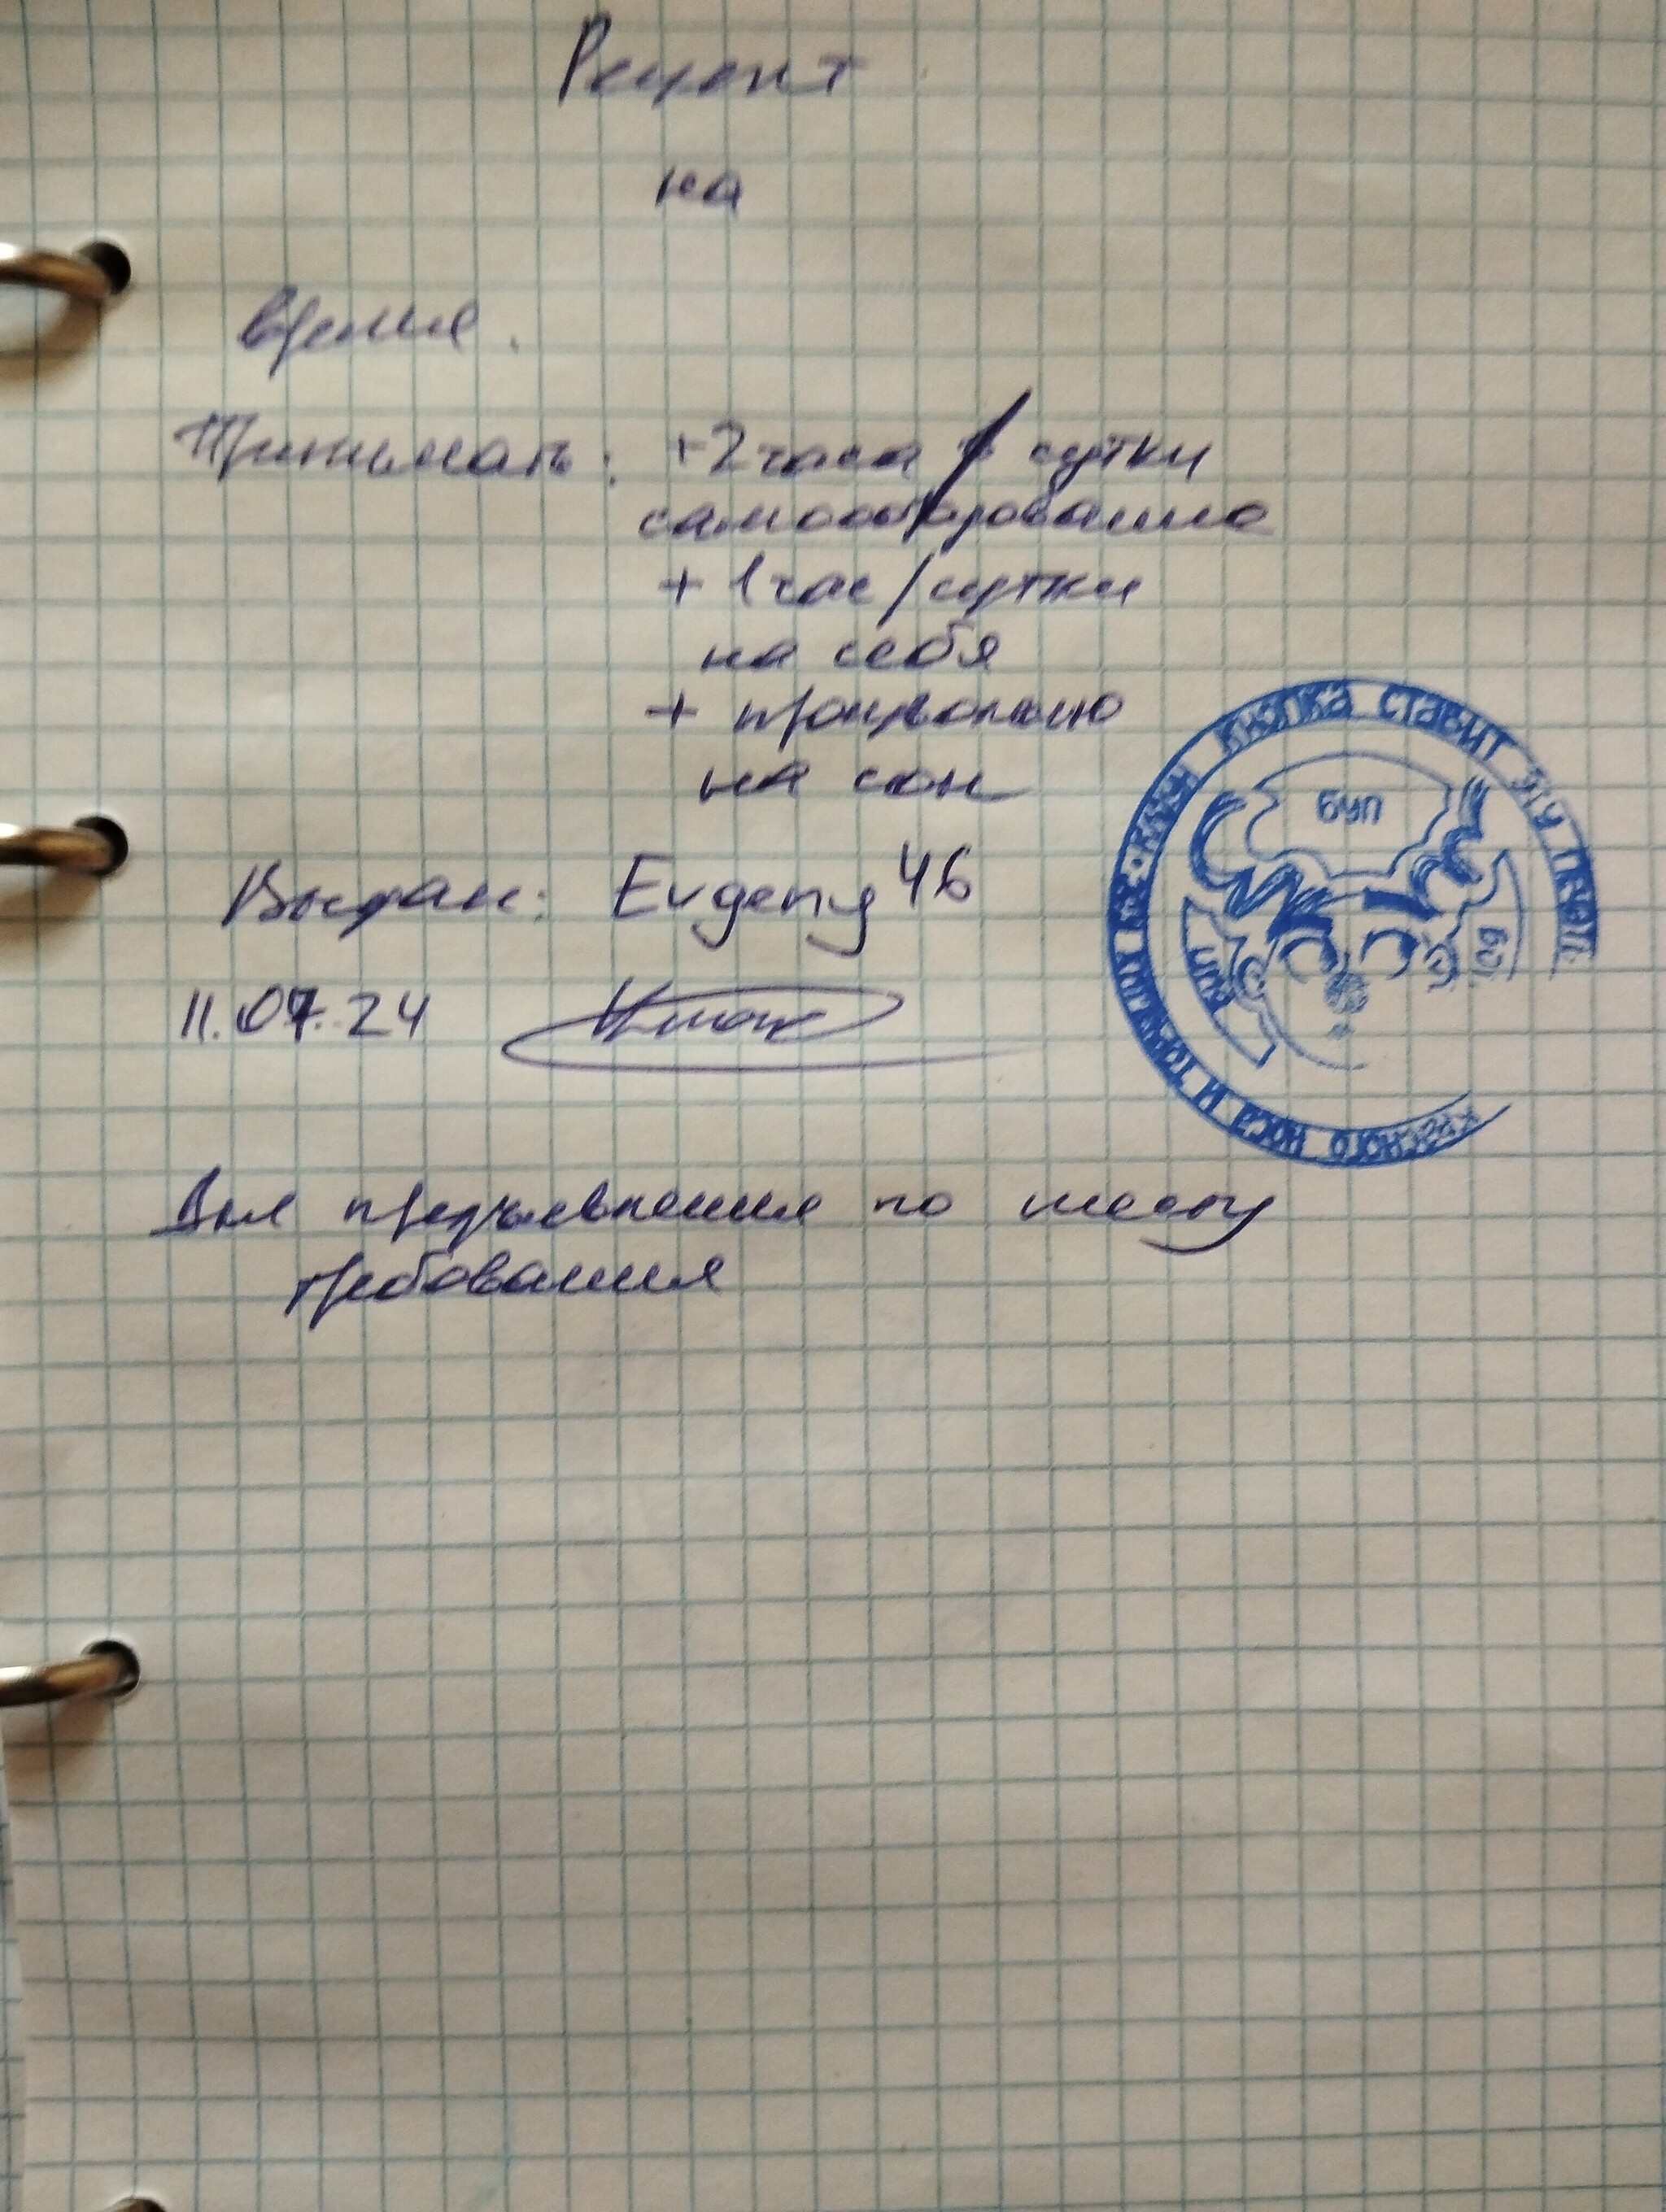 Рецепт
на
время.
Принимать: +2 часа / сутки
самообразование
+ 1 час/сутки
на себя
+ произвольно
на сон
Выдан: Evgeny46
11.07.24
Для предъявления по месту
требования
КЛОУН КНОПКА СТАВИТ ЭТУ ПЕЧАТЬ
КРАСНОГО НОСА И
БУП
БУП